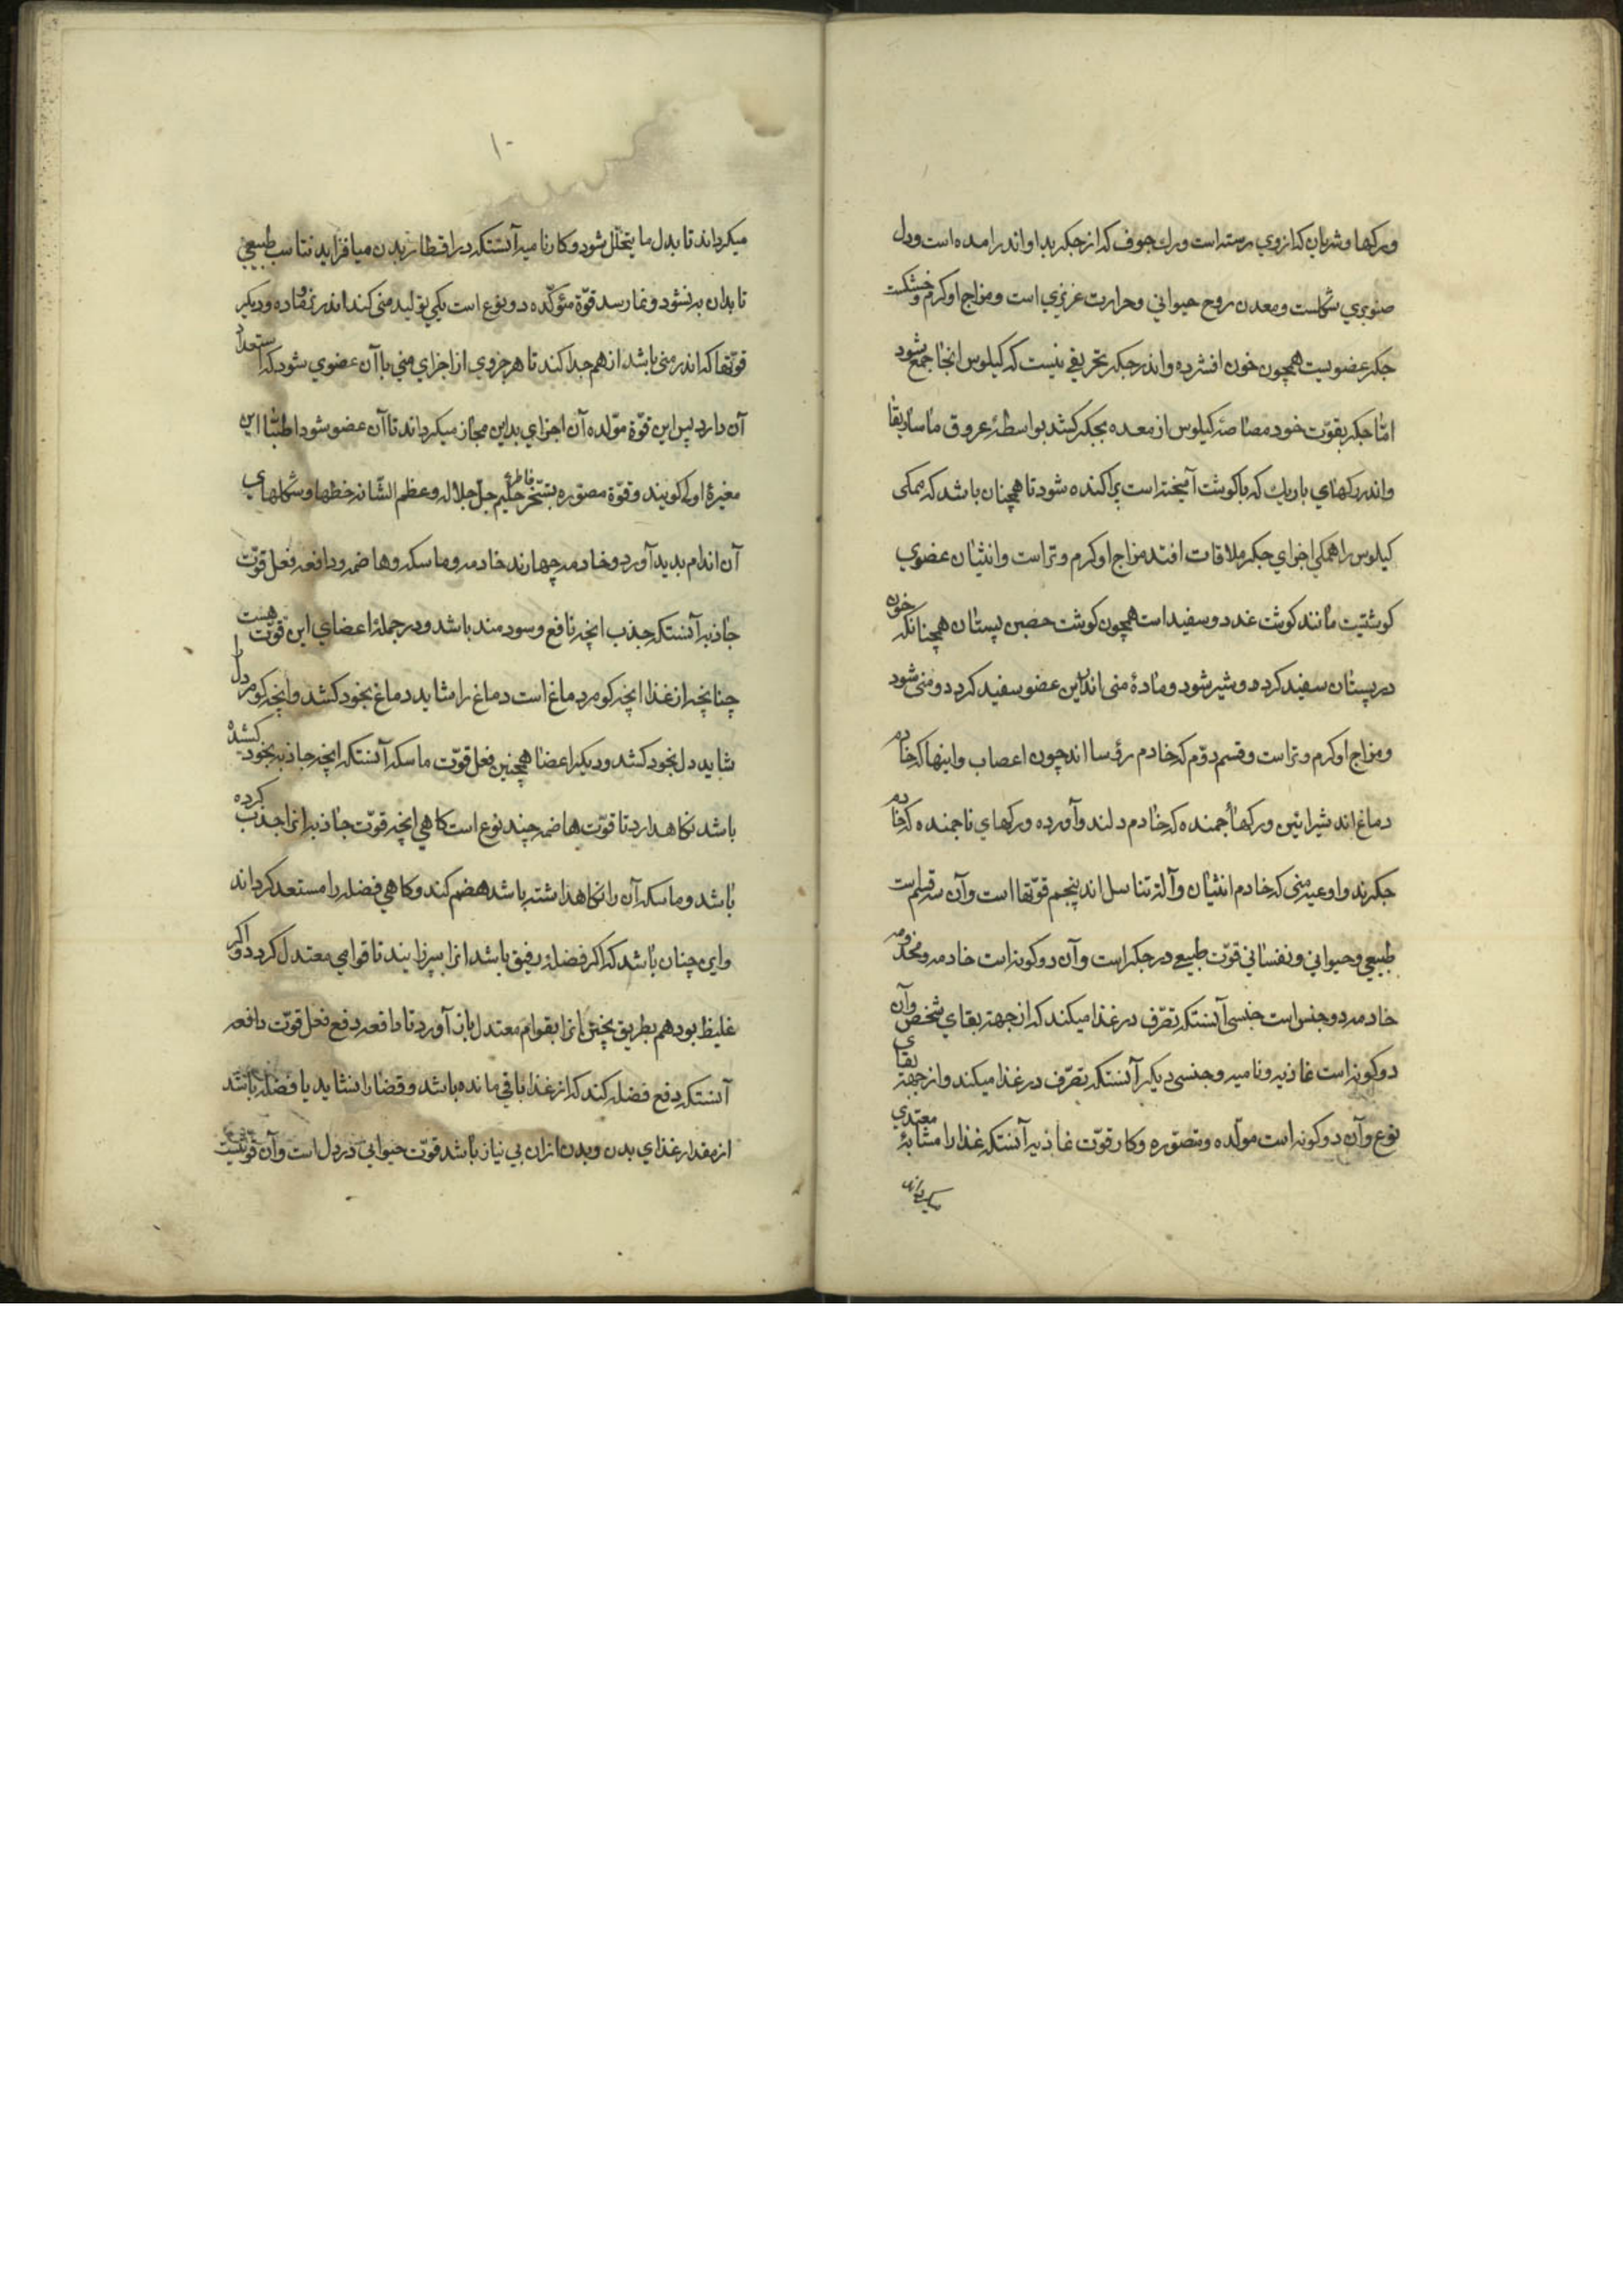 ورکها و شریان که از وی رسته است ورك جوف که از جکر بدا و اندر امده است و دل
صنوبری شکلست و معدن روح حیوانی و حرارت غریزی است و مزاج او کرم و خشکست
جکر عضویست همچون خون افشرده و اندر جکر تجریفی نیست که کیلوس انجا جمع شود
امّا جکر بقوّت خود مصاصهٔ کیلوس از معده بجکر کشد بواسطهٔ عروق ماساریقا
و اندر رکهای باریك که با کوشت آمیخته است پراکنده شود تا همچنان باشد که همکی
کیلوس را همکی اجزای جکر ملاقات افتد مزاج او کرم و تر است و انثیان عضوی
کوشتیت مانند کوشت غدد و سفید است همچون کوشت حصین پستان همچنانکه خون
در پستان سفید کردد و شیر شود و مادهٔ منی اندر این عضو سفید کردد و منی شود
و مزاج او کرم و تر است و قسم دوّم که خادم رؤسا اند چون اعصاب و اینها که خادم
دماغ اند شرائین و رکها جمنده که خادم دلند و آورده و رکهای ناجمنده که خادم
جکرند و اوعیه منی که خادم انثیان و آلة تناسل اند پنجم قوّتها است و آن سه قسم است
طبیعی و حیوانی و نفسانی قوّت طبیعی در جکر است و آن دو کونه است خادمه و مخدومه
خادمه دو جنس است جنسی آنستکه تصّرف در غذا میکند که از جهة بقای شخص و آن
دو کونه است غاذیه و نامیه و جنسی دیکر آنستکه تصّرف در غذا میکند و از جهة بقای
نوع و آن دو کونه است مولّده و مصّوره و کار قوّت غاذیه آنستکه غذا را مشابهٔ معتدی
میکرداند
۱۰
میکرداند تا بدل ما یتحلّل شود و کار نامیه آنستکه در اقطار بدن میافزاید بتناسب طبیعی
تا بدان برنشود و نما رسد قوّة مئوکّده دو نوع است یکی تولید منی کند اندر نر و ماده و دیکر
قوّتها که اندر منی باشد از هم جدا کند تا هر جزوی از اجزای منی با آن عضوی شود که استعداد
آن دارد پس این قوّة موّلده آن اجزای بدین مجاز میکرداند تا آن عضو شود اطبّا این
مغیرهٔ اولی کویند و قوّة مصوّره بتسّخر فاطرهٔ حکیم جلّ جلاله و عظم الشّانه خطها و شکلهای
آن اندام بدید آورد و خادمه چهارند خادمه و ماسکه و هاضمه و دافعه فعل قوّت
جاذبه آنستکه جذب انچه نافع و سودمند باشد و در جملهٔ اعضای این قوّت هست
چنانچه از غذا انچه کو مرد ماغ است دماغ را شاید دماغ بخود کشد و انچه کو مردل را
شاید دل بخود کشد و دیکر اعضا همچنین فعل قوّت ماسکه آنستکه انچه جاذبه بخود کشیده
باشد نکاهدارد تا قوّت هاضمه چند نوع است کاهی انچه قوّت جاذبه انرا جذب کرده
باشد و ماسکه آن را نکاهداشته باشد هضم کند و کاهی فضله را مستعد کرداند
و این چنان باشد که اکر فضلهٔ رقیق باشد انرا بپزایند تا قوامی معتدل کردد و اکر
غلیظ بود هم بطریق پختن انرا بقوام معتدل باز آورد تا دافعه دفع فعل قوّت دافعه
آنستکه دفع فضله کند که از غذا باقی مانده باشد و قضا را نشاید یا فضله باشد
از مقدار غذای بدن و بدن ازان بی نیاز باشد قوّت حیوانی در دل است و آن قوّتیست